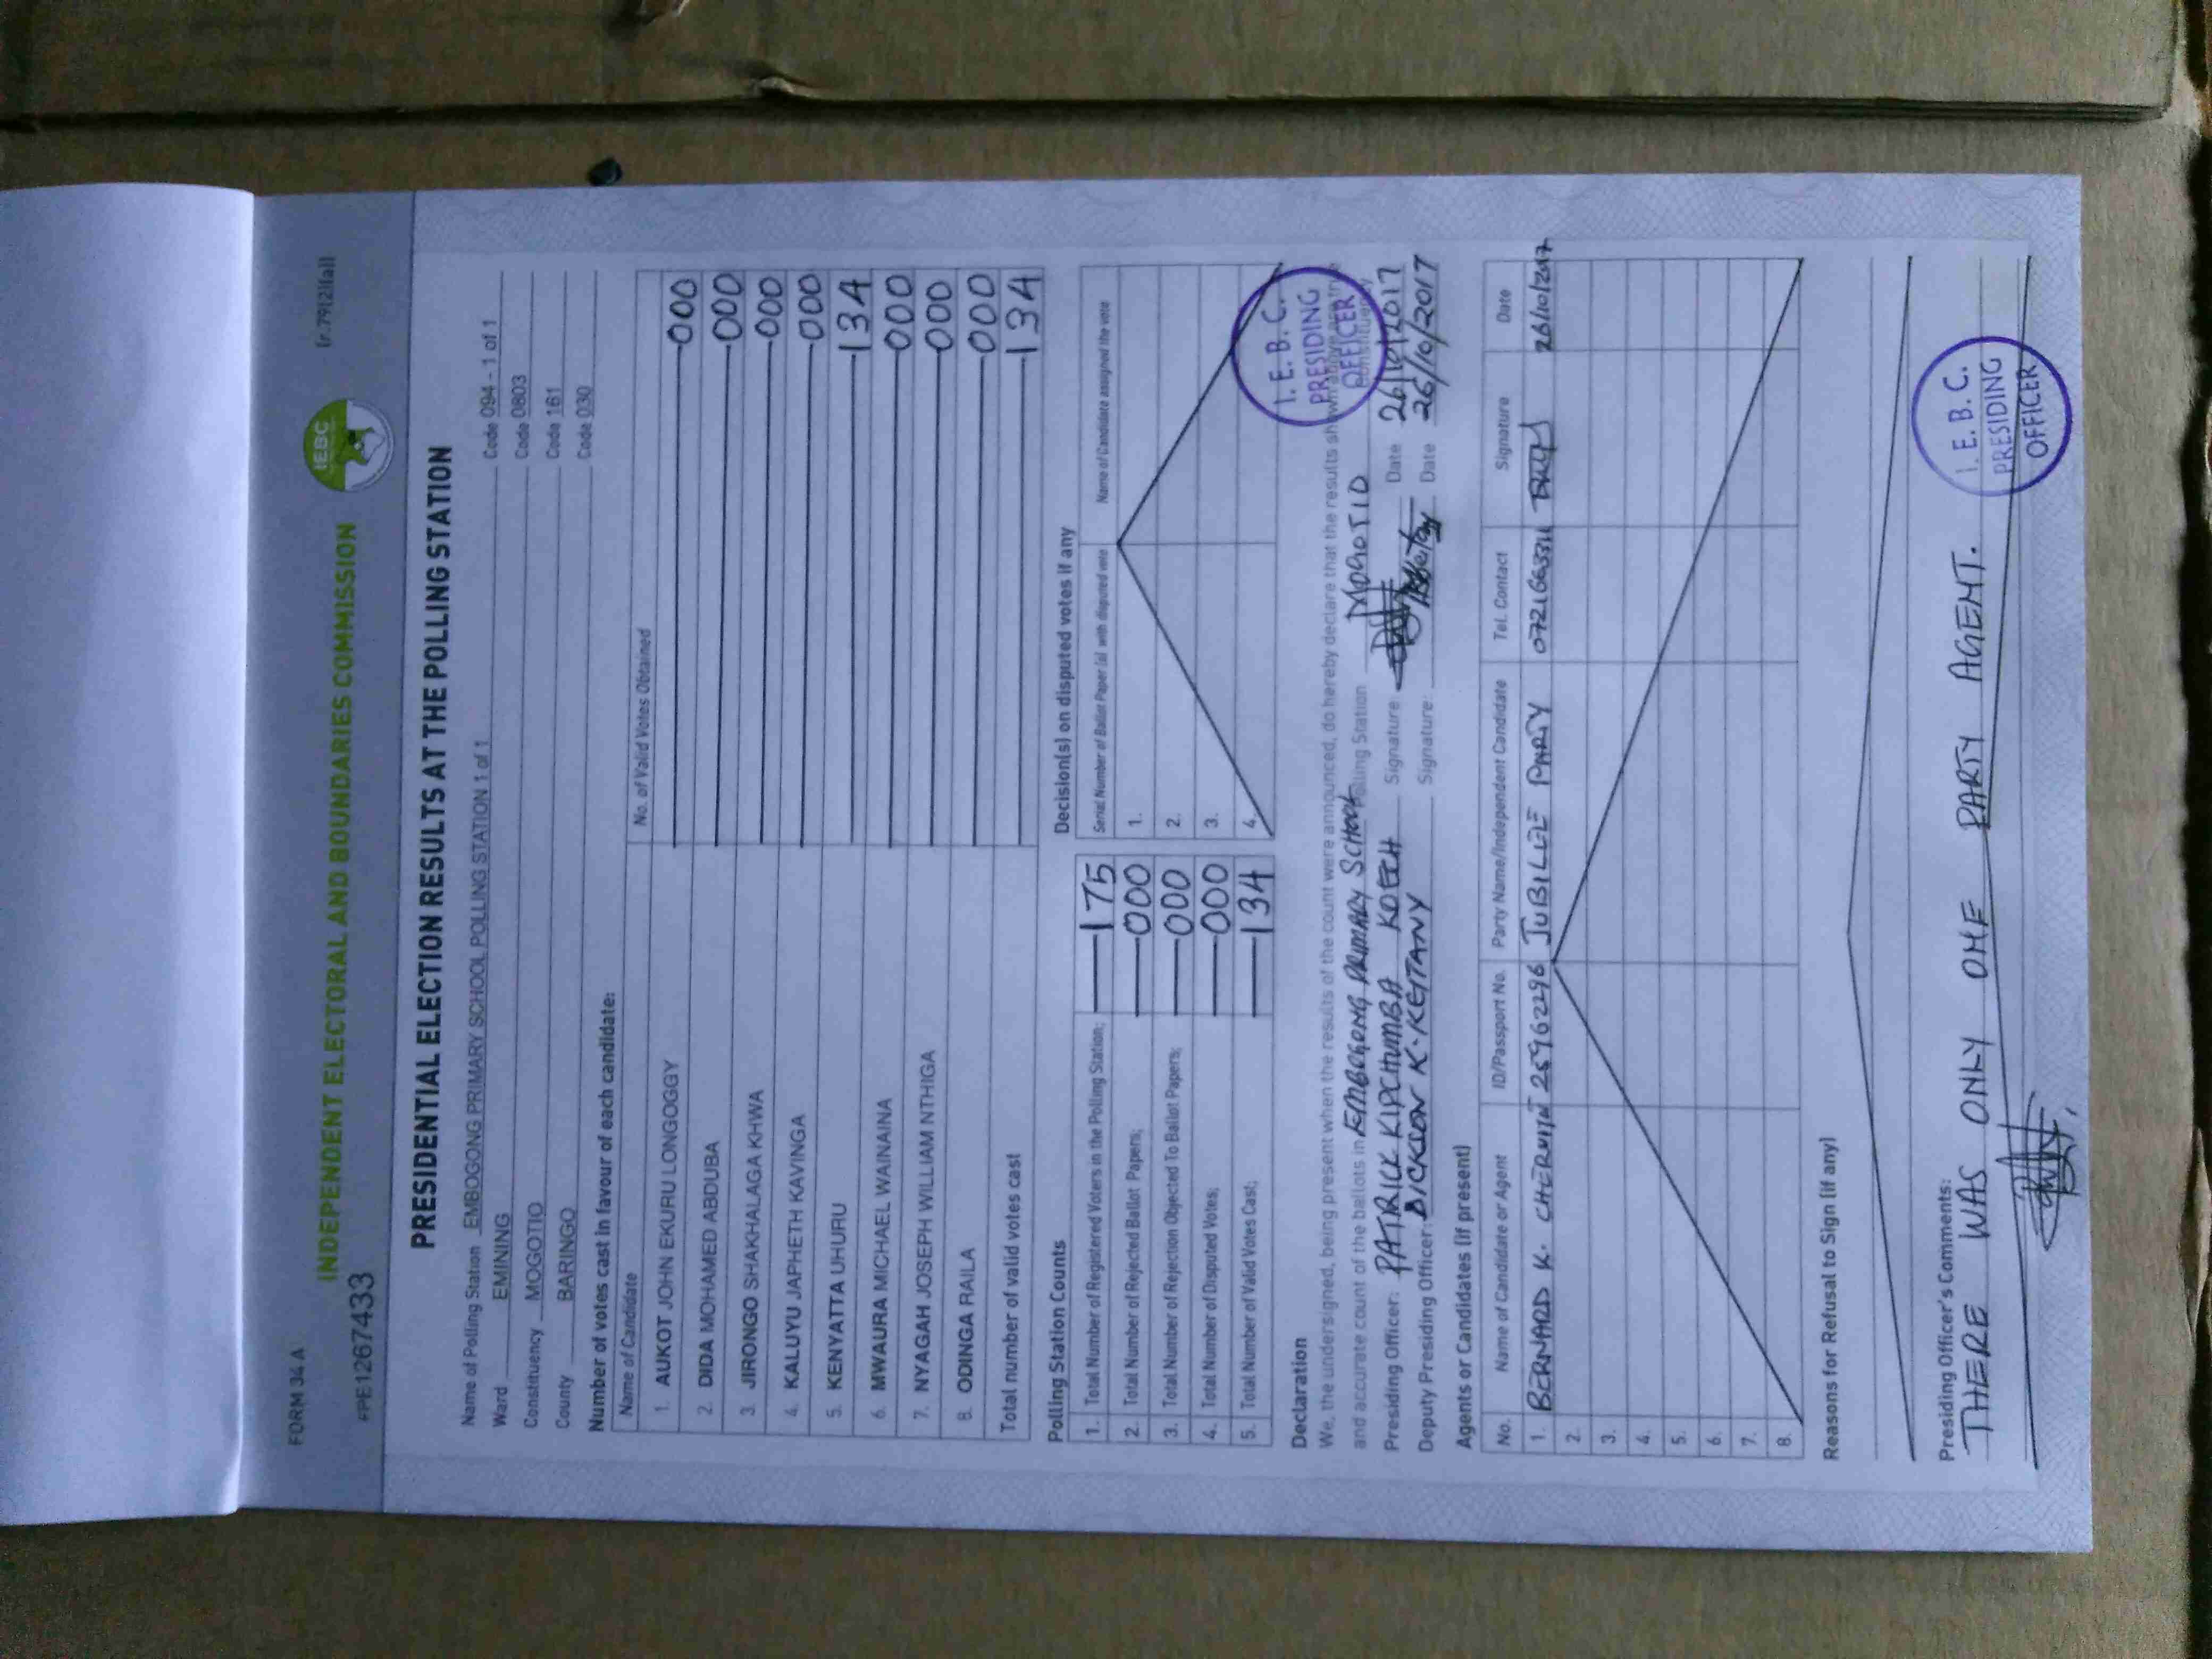 FORM 34 A
(r.79(2)(a))
INDEPENDENT ELECTORAL AND BOUNDARIES COMMISSION
IEBC
FPE1267433
PRESIDENTIAL ELECTION RESULTS AT THE POLLING STATION
Name of Polling Station EMBOGONG PRIMARY SCHOOL POLLING STATION 1 of 1 Code 094 - 1 of 1
Ward EMINING Code 0803
Constituency MOGOTIO Code 161
County BARINGO Code 030
Number of votes cast in favour of each candidate:
Name of Candidate No. of Valid Votes Obtained
1. AUKOT JOHN EKURU LONGOGGY 000
2. DIDA MOHAMED ABDUBA 000
3. JIRONGO SHAKHALAGA KHWA 000
4. KALUYU JAPHETH KAVINGA 000
5. KENYATTA UHURU 134
6. MWAURA MICHAEL WAINAINA 000
7. NYAGAH JOSEPH WILLIAM NTHIGA 000
8. ODINGA RAILA 000
Total number of valid votes cast 134
Polling Station Counts
1. Total Number of Registered Voters in the Polling Station; 175
2. Total Number of Rejected Ballot Papers; 000
3. Total Number of Rejection Objected To Ballot Papers; 000
4. Total Number of Disputed Votes; 000
5. Total Number of Valid Votes Cast; 134
Decision(s) on disputed votes if any
Serial Number of Ballot Paper (s) with disputed vote Name of Candidate assigned the vote
1.
2.
3.
4.
I. E. B. C.
PRESIDING
OFFICER
Declaration
We, the undersigned, being present when the results of the count were announced, do hereby declare that the results shown above are true
and accurate count of the ballots in EMBOGONG PRIMARY SCHOOL Polling Station MOGOTIO Constituency
Presiding Officer: PATRICK KIPCHUMBA KOECH Signature Date 26/10/2017
Deputy Presiding Officer: DICKSON K. KEITANY Signature: Date 26/10/2017
Agents or Candidates (if present)
No. Name of Candidate or Agent ID/Passport No. Party Name/Independent Candidate Tel. Contact Signature Date
1. BERNARD K. CHERUIYOT 25962296 JUBILEE PARTY 26/10/2017
2.
3.
4.
5.
6.
7.
8.
Reasons for Refusal to Sign (if any)
Presiding Officer's Comments:
THERE WAS ONLY ONE PARTY AGENT.
I. E. B. C.
PRESIDING
OFFICER